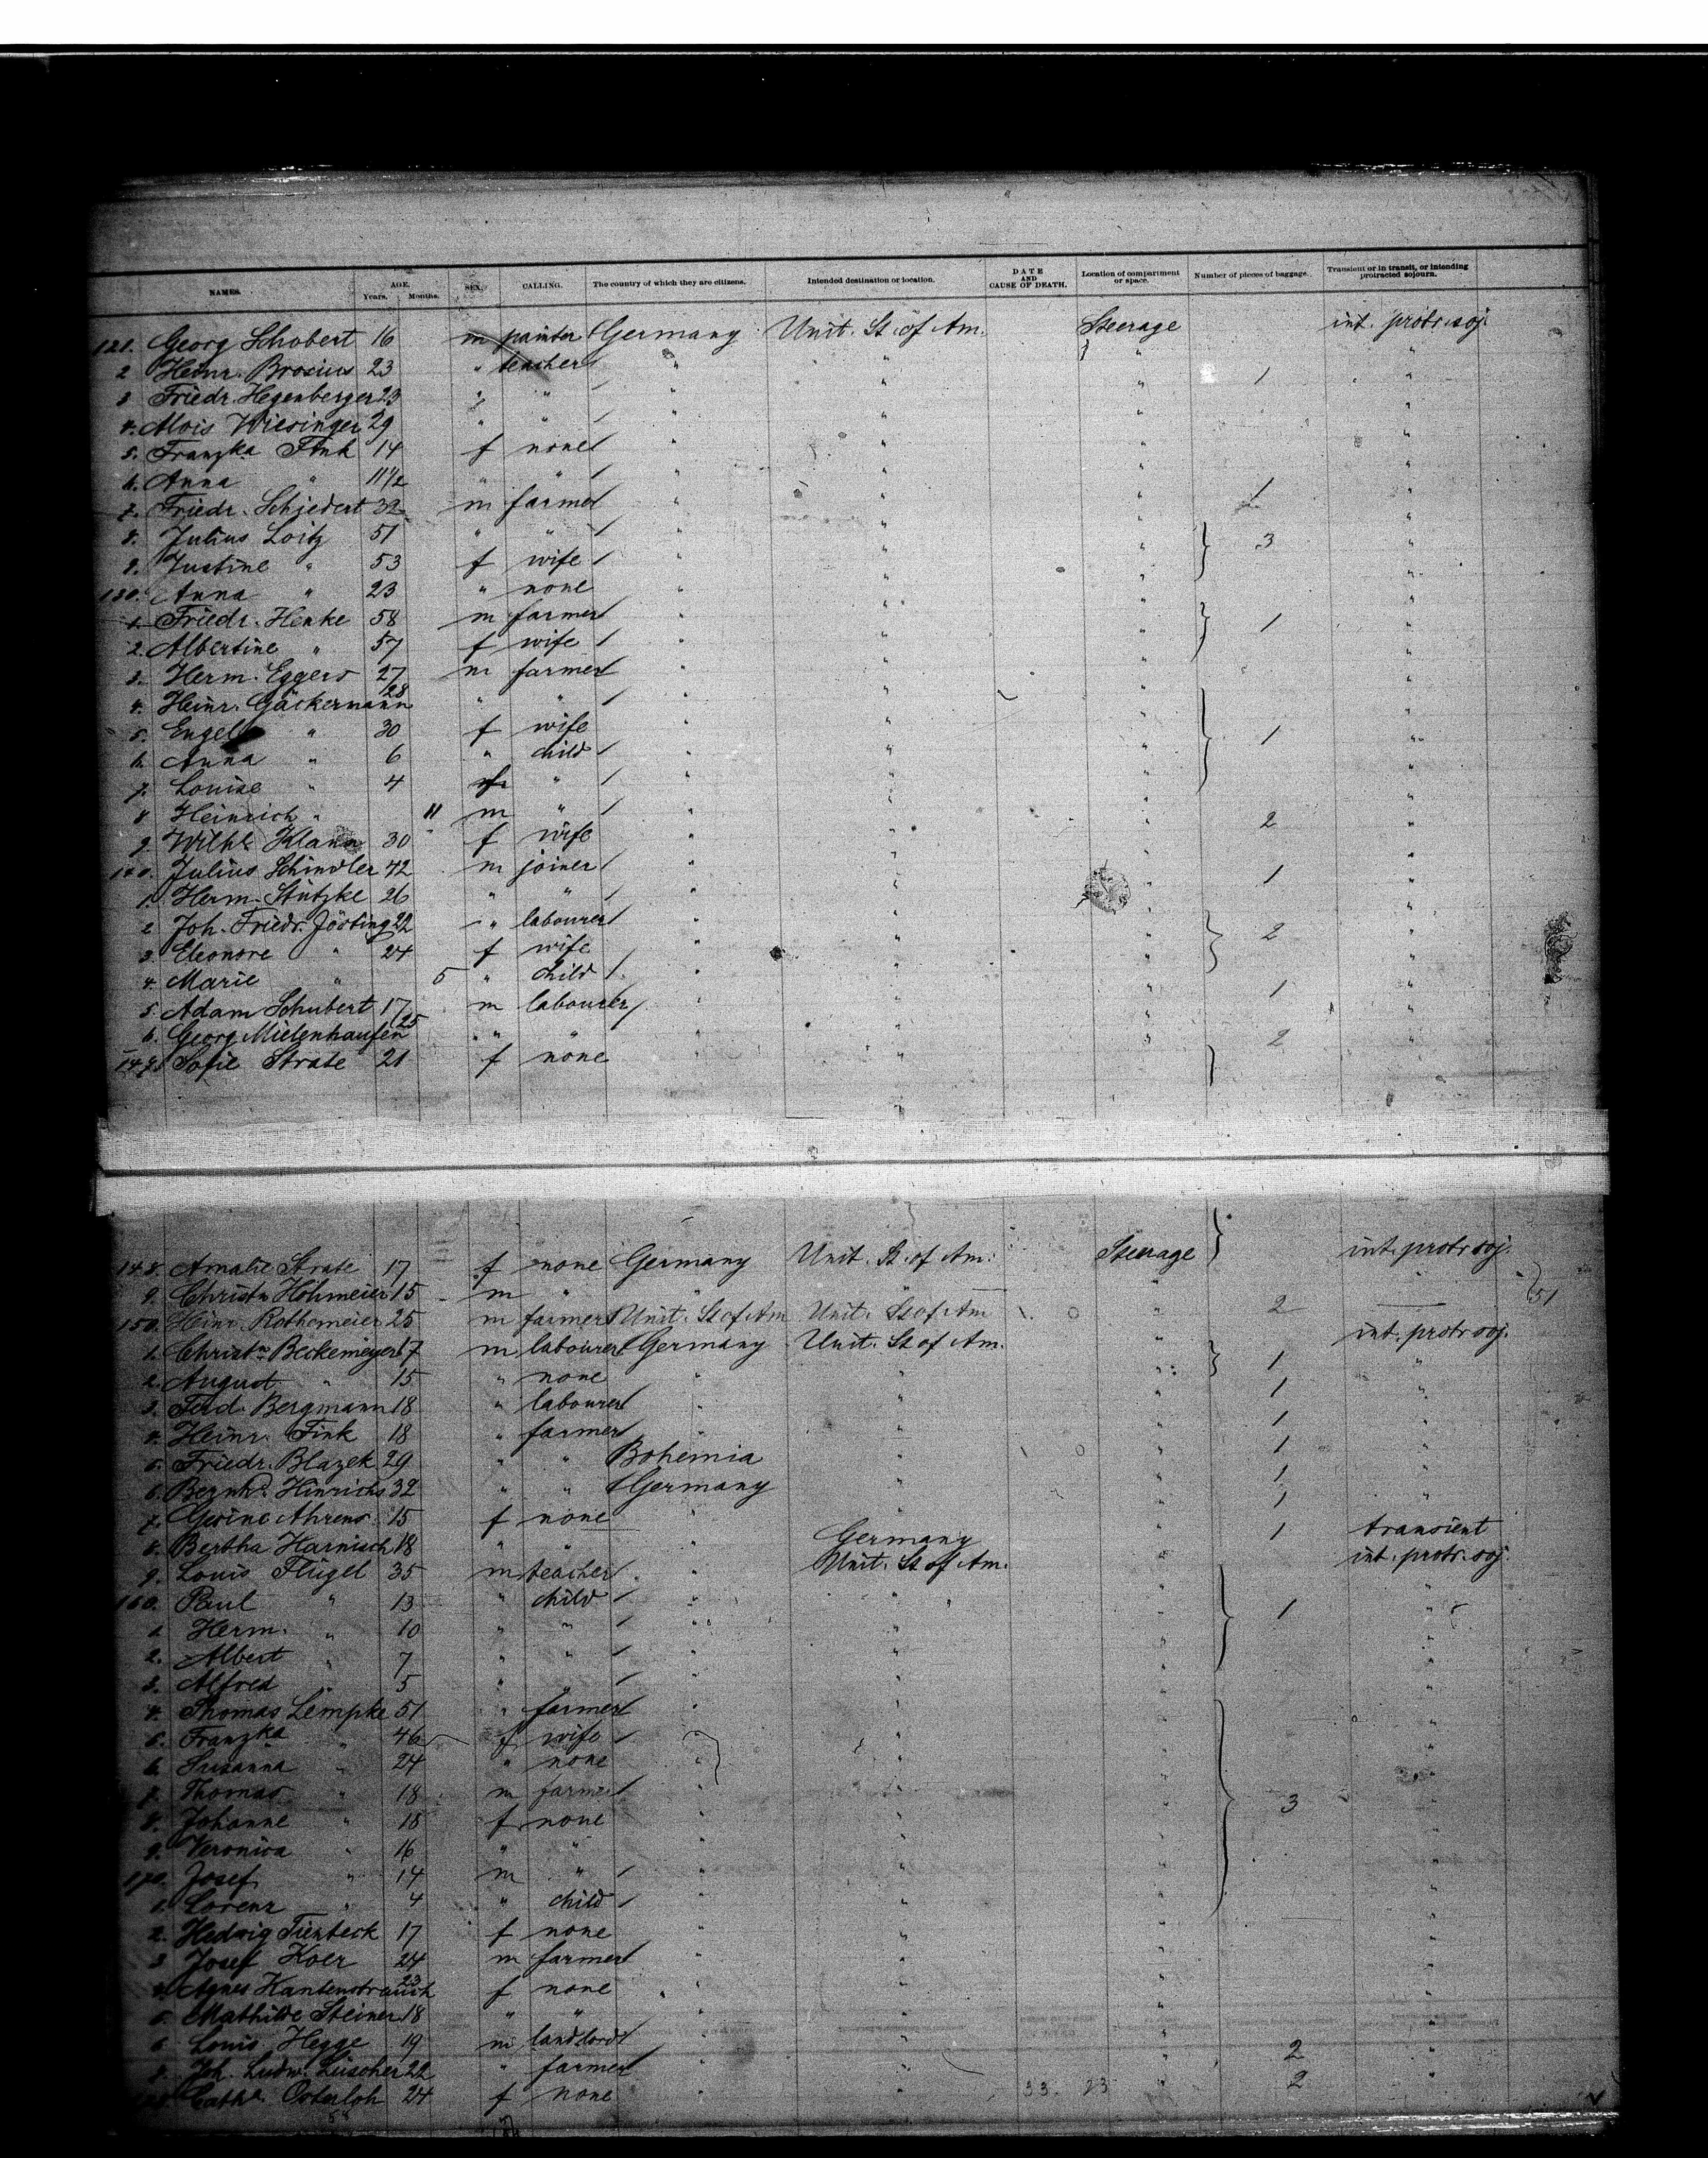 NAMES. AGE. Years. Months. SEX. CALLING. The country of which they are citizens. Intended destination or location. DATE AND CAUSE OF DEATH. Location of compartment or space. Number of pieces of baggage. Transient or in transit, or intending protracted sojourn.
121. Georg Schobert 16 m painter Germany Unit. St. of Am. Steerage int. protr. soj.
2 Heinr. Brosius 23 " teacher " " " 1 "
3 Friedr. Hegenberger 23 " " " " " "
4. Alois Wiesinger 29 " " " " " "
5. Franzka Fink 14 f none " " " "
6. Anna " 11 1/2 " " " " " "
7. Friedr. Schiedert 32 m farmer " " " 1 "
8. Julius Loitz 51 " " " " " 3 "
9. Justine " 53 f wife " " " "
130. Anna " 23 " none " " " "
1. Friedr. Henke 58 m farmer " " " 1 "
2. Albertine " 57 f wife " " " "
3. Herm. Eggers 27 m farmer " " " "
4. Heinr. Gäckermann 28 " " " " " "
5. Engel " 30 f wife " " " 1 "
6. Anna " 6 " child " " " "
7. Louise " 4 " " " " "
8 Heinrich " 11 m " " " " "
9. Wilhe Klann 30 f wife " " " 2 "
140. Julius Schindler 42 m joiner " " " "
1. Herm. Stützke 26 " " " " " 1 "
2 Joh. Friedr. Jösting 22 " labourer " " " "
3. Eleonore " 24 f wife " " " 2 "
4. Marie " 5 " child " " " "
5. Adam Schubert 17 m labourer " " " 1 "
6. Georg Mielenhausen 25 " " " " " "
147. Sofie Strate 21 f none " " " 2 "
148. Amalie Strate 17 f none Germany Unit. St. of Am. Steerage int. protr soj.
9. Christn Hohmeier 15 m " " " " "
150. Heinr. Rothemeier 25 m farmer Unit. St of Am Unit. St of Am " 2
1. Christn Beckemeyer 17 m labourer Germany Unit. St of Am. " int. protr soj.
2. August " 15 " none " " " 1 "
3. Ferd. Bergmann 18 " labourer " " " 1 "
4. Heinr. Fink 18 " farmer " " " 1 "
5. Friedr. Blazek 29 " " Bohemia " " 1 "
6. Bernhd. Hinrichs 32 " " Germany " " 1 "
7. Gesine Ahrens 15 f none " " " 1 "
8. Bertha Harnisch 18 " " " Germany " 1 transient
9. Louis Flügel 35 m teacher " Unit. St of Am. " int. protr. soj.
160. Paul " 13 " child " " " 1 "
1. Herm. " 10 " " " " " "
2. Albert " 7 " " " " " "
3. Alfred " 5 " " " " " "
4. Thomas Lempke 51 " farmer " " " "
5. Franzka " 46 f wife " " " "
6. Susanna " 24 " none " " " "
7. Thomas " 18 m farmer " " " 3 "
8. Johanne " 18 f none " " " "
9. Veronica " 16 " " " " " "
170. Josef " 14 m " " " " "
1. Lorenz " 4 " child " " " "
2. Hedwig Tierbeck 17 f none " " " "
3 Josef Koer 24 m farmer " " " "
4. Agnes Kantenstrauch 23 f none " " " "
5. Mathilde Steiner 18 " " " " " "
6 Louis Hegge 19 m landlord " " " "
7. Joh. Ludw. Lüscher 22 " farmer " " " 2 "
Cathe Osterloh 24 f none " " 33. 23 " 2 "